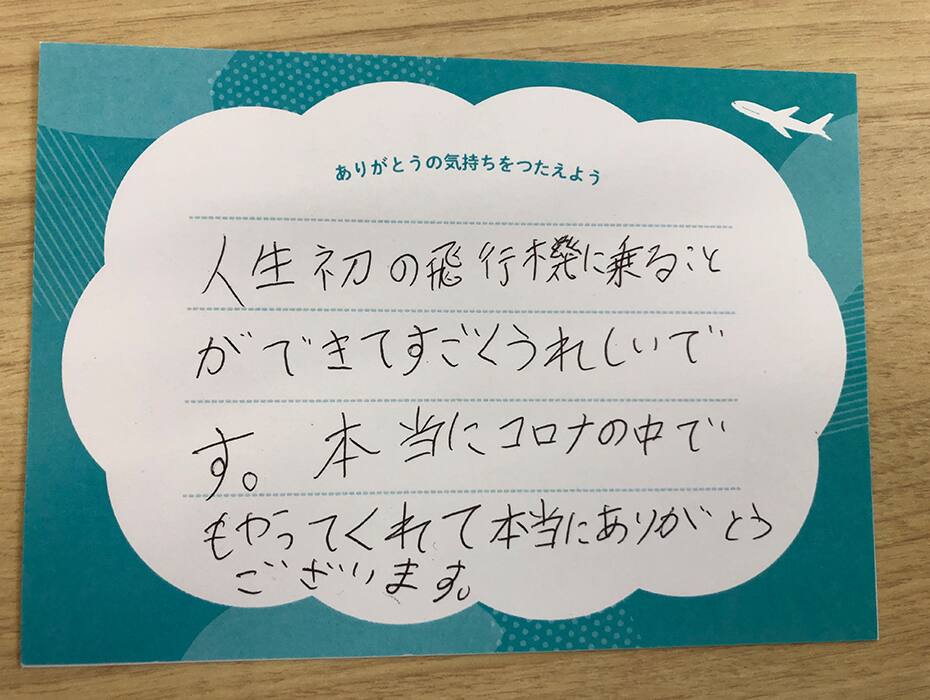 ありがとうの気持ちをつたえよう
人生初の飛行機に乗ること
ができてすごくうれしいで
す。本当にコロナの中で
もやってくれて本当にありがとう
ございます。